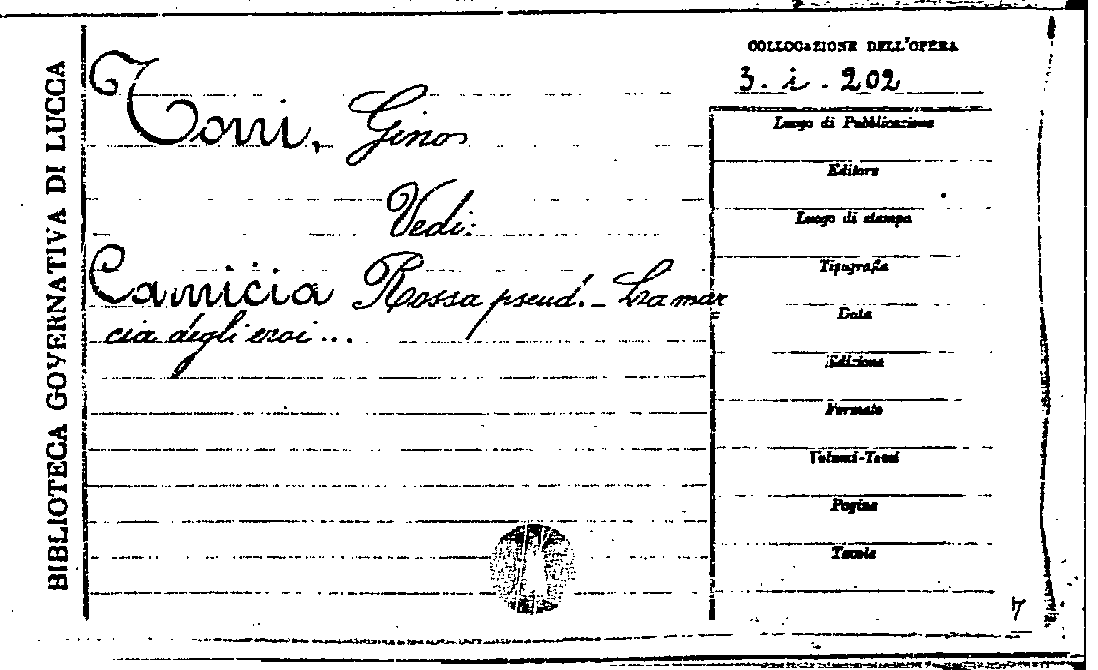 BIBLIOTECA GOVERNATIVA DI LUCCA
Torri, Gino
Vedi:
Camicia Rossa pseud. - La mar
cia degli eroi...
COLLOCAZIONE DELL'OPERA
3. i. 202
Luogo di Pubblicazione
Editore
Luogo di stampa
Tipografia
Data
Edizione
Formato
Volumi-Tomi
Pagine
Tavole
7